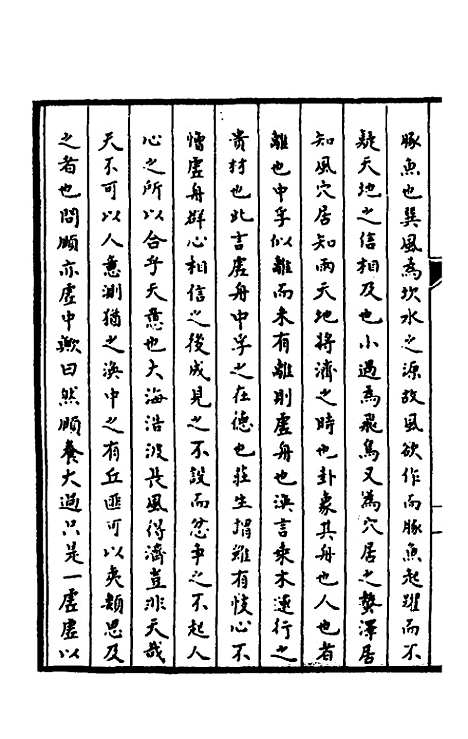 豚魚也巽風為坎水之源故風欲作而豚魚起躍而不
疑天地之信相及也小過為飛鳥又為穴居之蟄澤居
知風穴居知雨天地將濟之時也卦象其舟也人也者
離也中孚似離而未有離則虛舟也渙言乘木運行之
貴材也此言虛舟中孚之在德也莊生謂雖有忮心不
慍虛舟群心相信之後成見之不設而忿爭之不起人
心之所以合乎天意也大海浩波長風得濟豈非天哉
天不可以人意測猶之渙中之有丘匪可以夷類思及
之者也問頤亦虛中歟曰然頤養大過只是一虛虛以